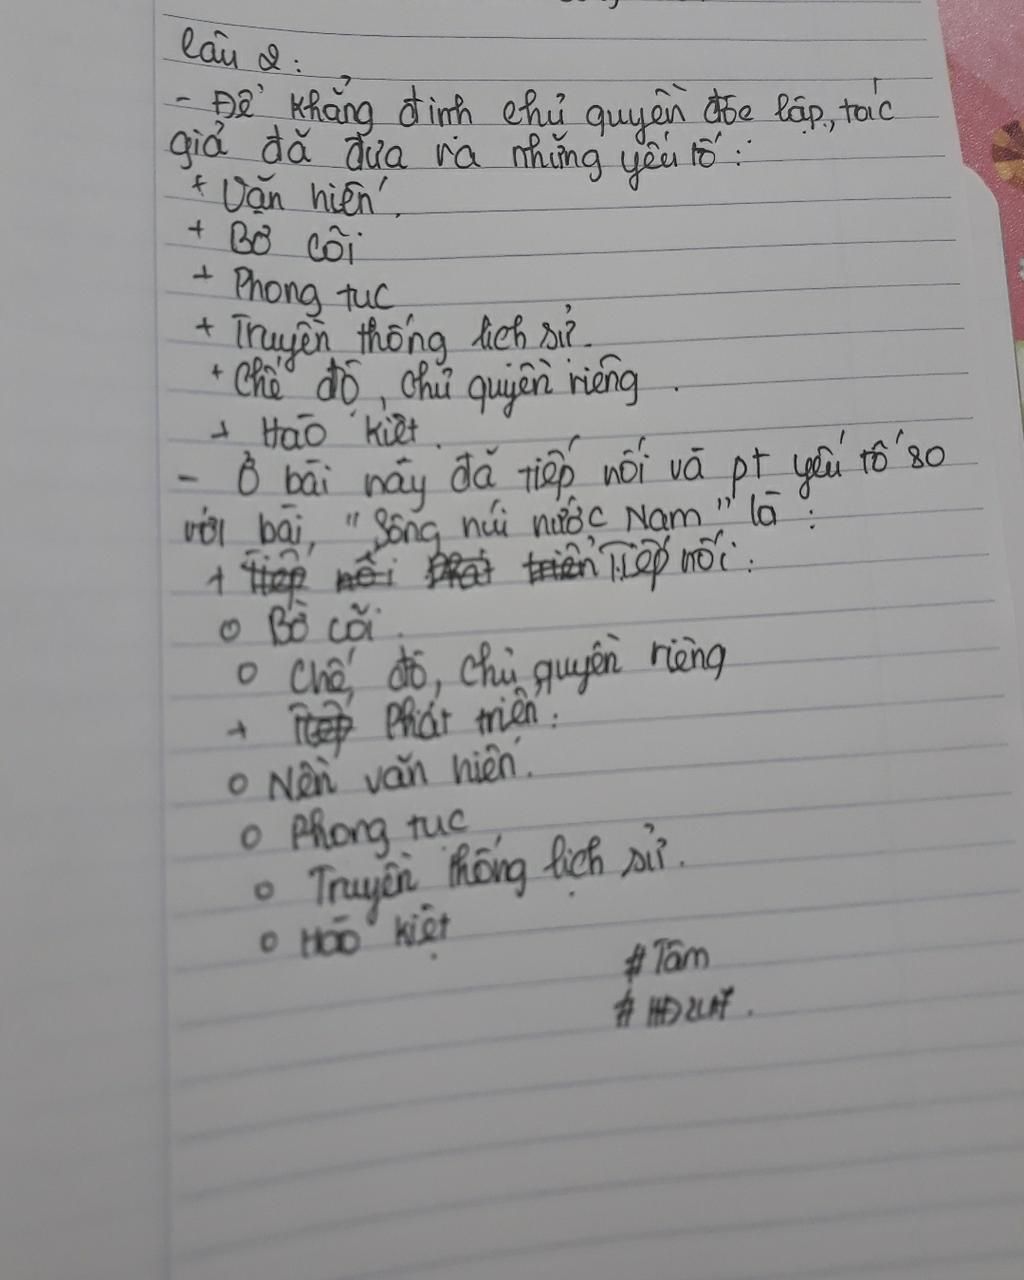 Câu 2:
- Để khẳng định chủ quyền độc lập, tác
giả đã đưa ra những yếu tố:
+ Văn hiến.
+ Bờ cõi
+ Phong tục
+ Truyền thống lịch sử.
+ Chế độ, chủ quyền riêng.
+ Hào kiệt.
- Ở bài này đã tiếp nối và pt yếu tố so
với bài, "Sông núi nước Nam" là:
+ Tiếp nối:
o Bờ cõi.
o Chế độ, chủ quyền riêng
+ Phát triển:
o Nền văn hiến.
o Phong tục
o Truyền thống lịch sử.
o Hào kiệt
# Tâm